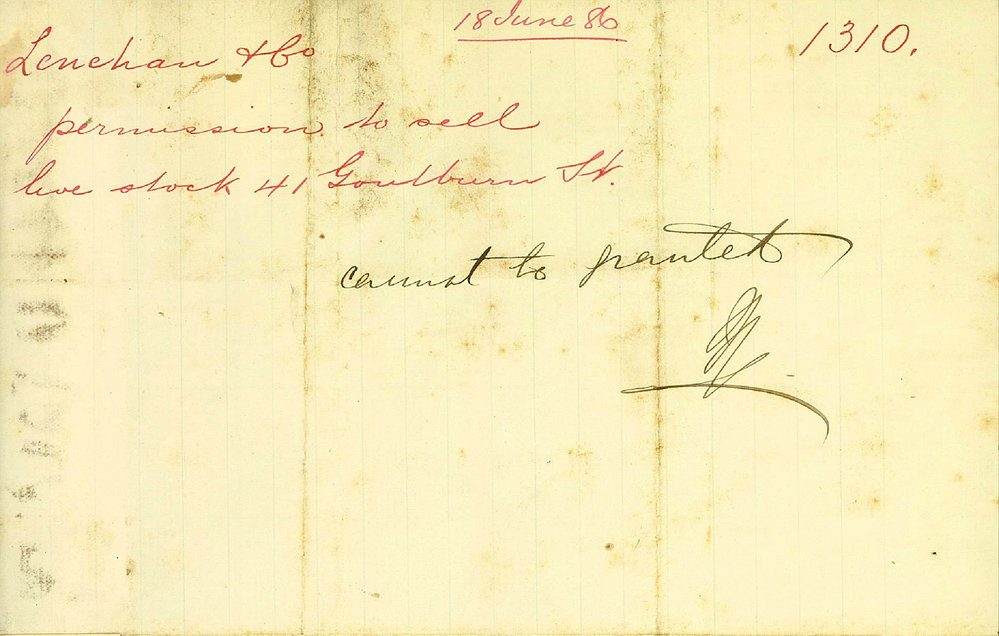 18 June 86
1310.
Lenehan & Co
permission to sell
live stock 41 Goulburn St.
cannot be granted